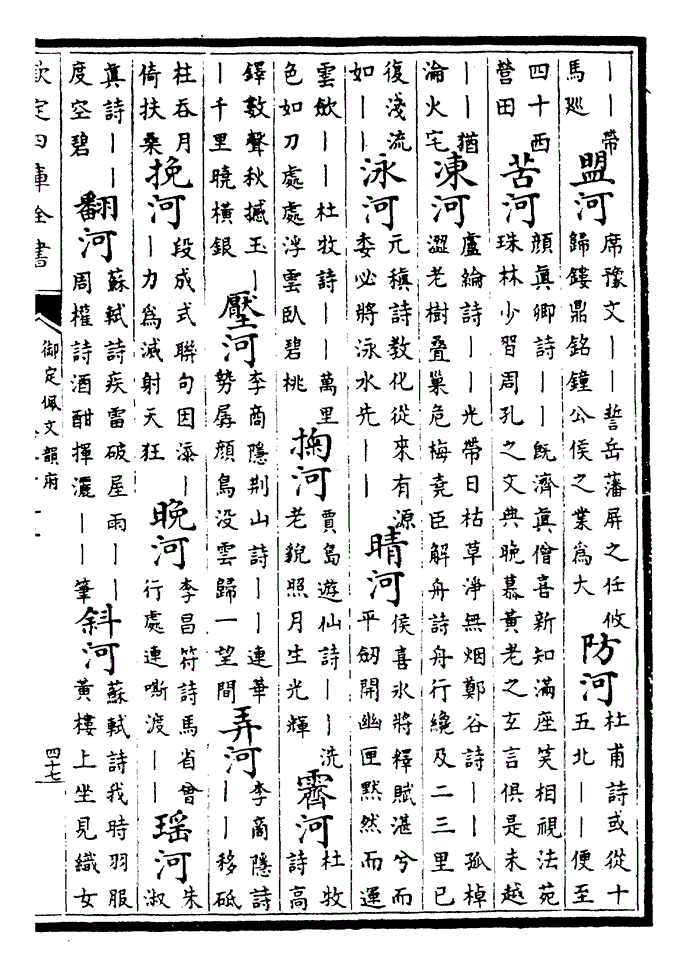 ｜｜帶馬𨒪 盟河 席豫文｜｜誓岳藩屏之任攸歸鏤鼎銘鐘公侯之業爲大 防河 杜甫詩或從十五北｜｜便至
四十西營田 苦河 顔真卿詩｜｜既濟真僧喜新知滿座笑相視法苑珠林少習周孔之文典晚慕黃老之玄言俱是未越
｜｜猶淪火宅 凍河 盧綸詩｜｜光帶日枯草淨無烟鄭谷詩｜｜孤棹澀老樹疊巢危梅堯臣解舟詩舟行纔及二三里已
復淺流如｜｜ 泳河 元稹詩教化從來有源委必將泳水先｜｜ 晴河 侯喜氷將釋賦湛兮而平劒開幽匣黙然而運
雲歛｜｜色如刀 杜牧詩｜｜萬里處處浮雲臥碧桃 掬河 賈島遊仙詩｜｜洗老貌照月生光輝 霽河 杜牧詩高
鐸數聲秋撼玉｜｜千里曉橫銀 壓河 李商隱荆山詩｜｜連華勢孱顔鳥没雲歸一望間 弄河 李商隱詩｜｜移砥
柱吞月倚扶桑 挽河 段成式聯句因添｜｜力爲減射天狂 晚河 李昌符詩馬省曾行處連嘶渡｜｜ 瑶河 朱淑
真詩｜｜度空碧 翻河 蘇軾詩疾雷破屋雨｜｜周權詩酒酣揮灑｜｜筆 斜河 蘇軾詩我時羽服黃樓上坐見織女
欽定四庫全書
御定佩文韻府
四十七